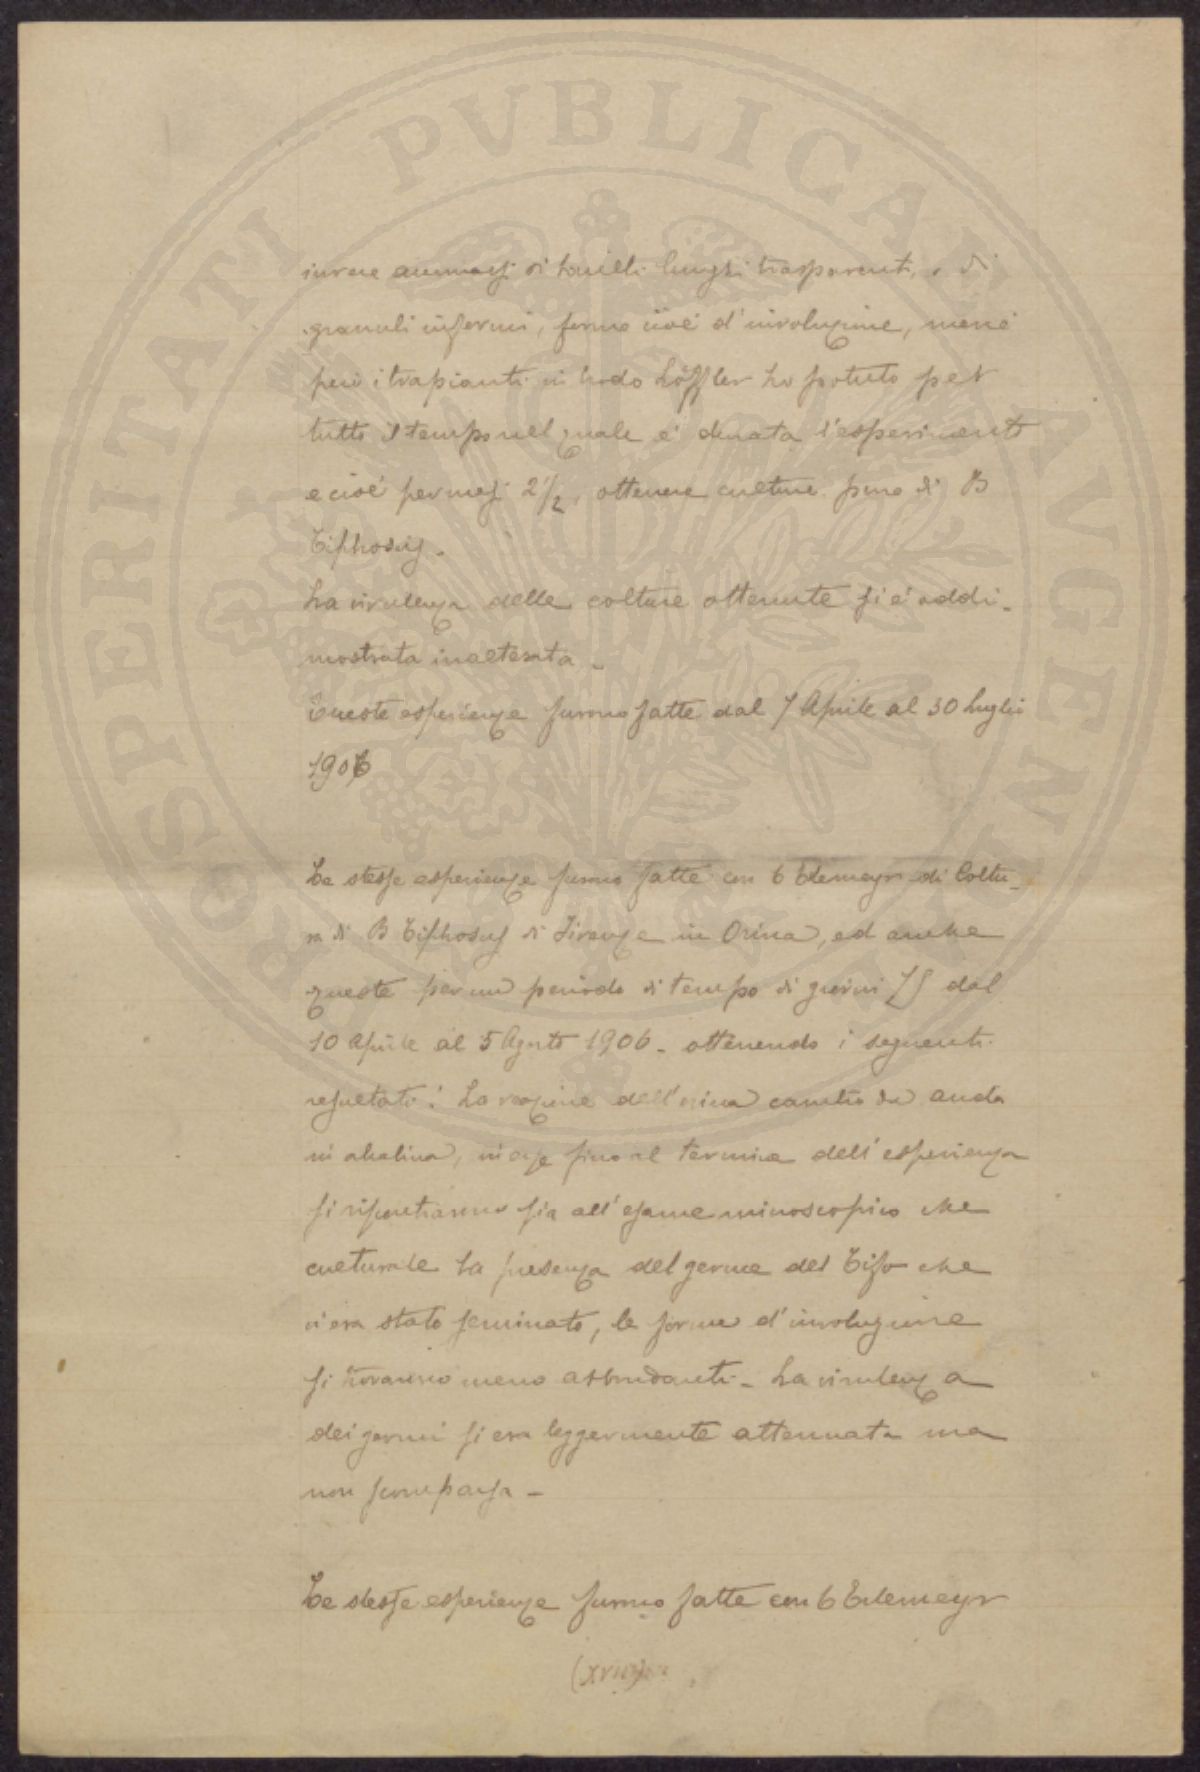 invece ammassi di bacilli lunghi trasparenti, e di
granuli informi, forme cioè d'involuzione, menè
però i trapianti in brodo Löffler ho potuto per
tutto il tempo nel quale è durata l'esperimento
e cioè per mesi 2 1/2, ottenere culture pure di B
Tiphosus.
La virulenza delle colture ottenute si è addi-
mostrata inalterata -
Queste esperienze furono fatte dal 7 Aprile al 30 Luglio
1906
Le stesse esperienze furono fatte con 6 Erlemeyr di Coltu-
ra di B Tiphosus di Firenze in Orina, ed anche
queste per un periodo di tempo di giorni 75 dal
10 Aprile al 5 Agosto 1906 - ottenendo i seguenti
resultati: La reazione dell'orina cambiò da acida
in alcalina, in esse fino al termine dell'esperienza
si riscontrarono sia all'esame microscopico che
culturale la presenza del germe del Tifo che
vi era stato seminato, le forme d'involuzione
si trovarono meno abbondanti - La virulenza
dei germi si era leggermente attenuata ma
non scomparsa -
Le stesse esperienze furono fatte con 6 Erlemeyr
PROSPERITATI PVBLICAE AVGENDAE